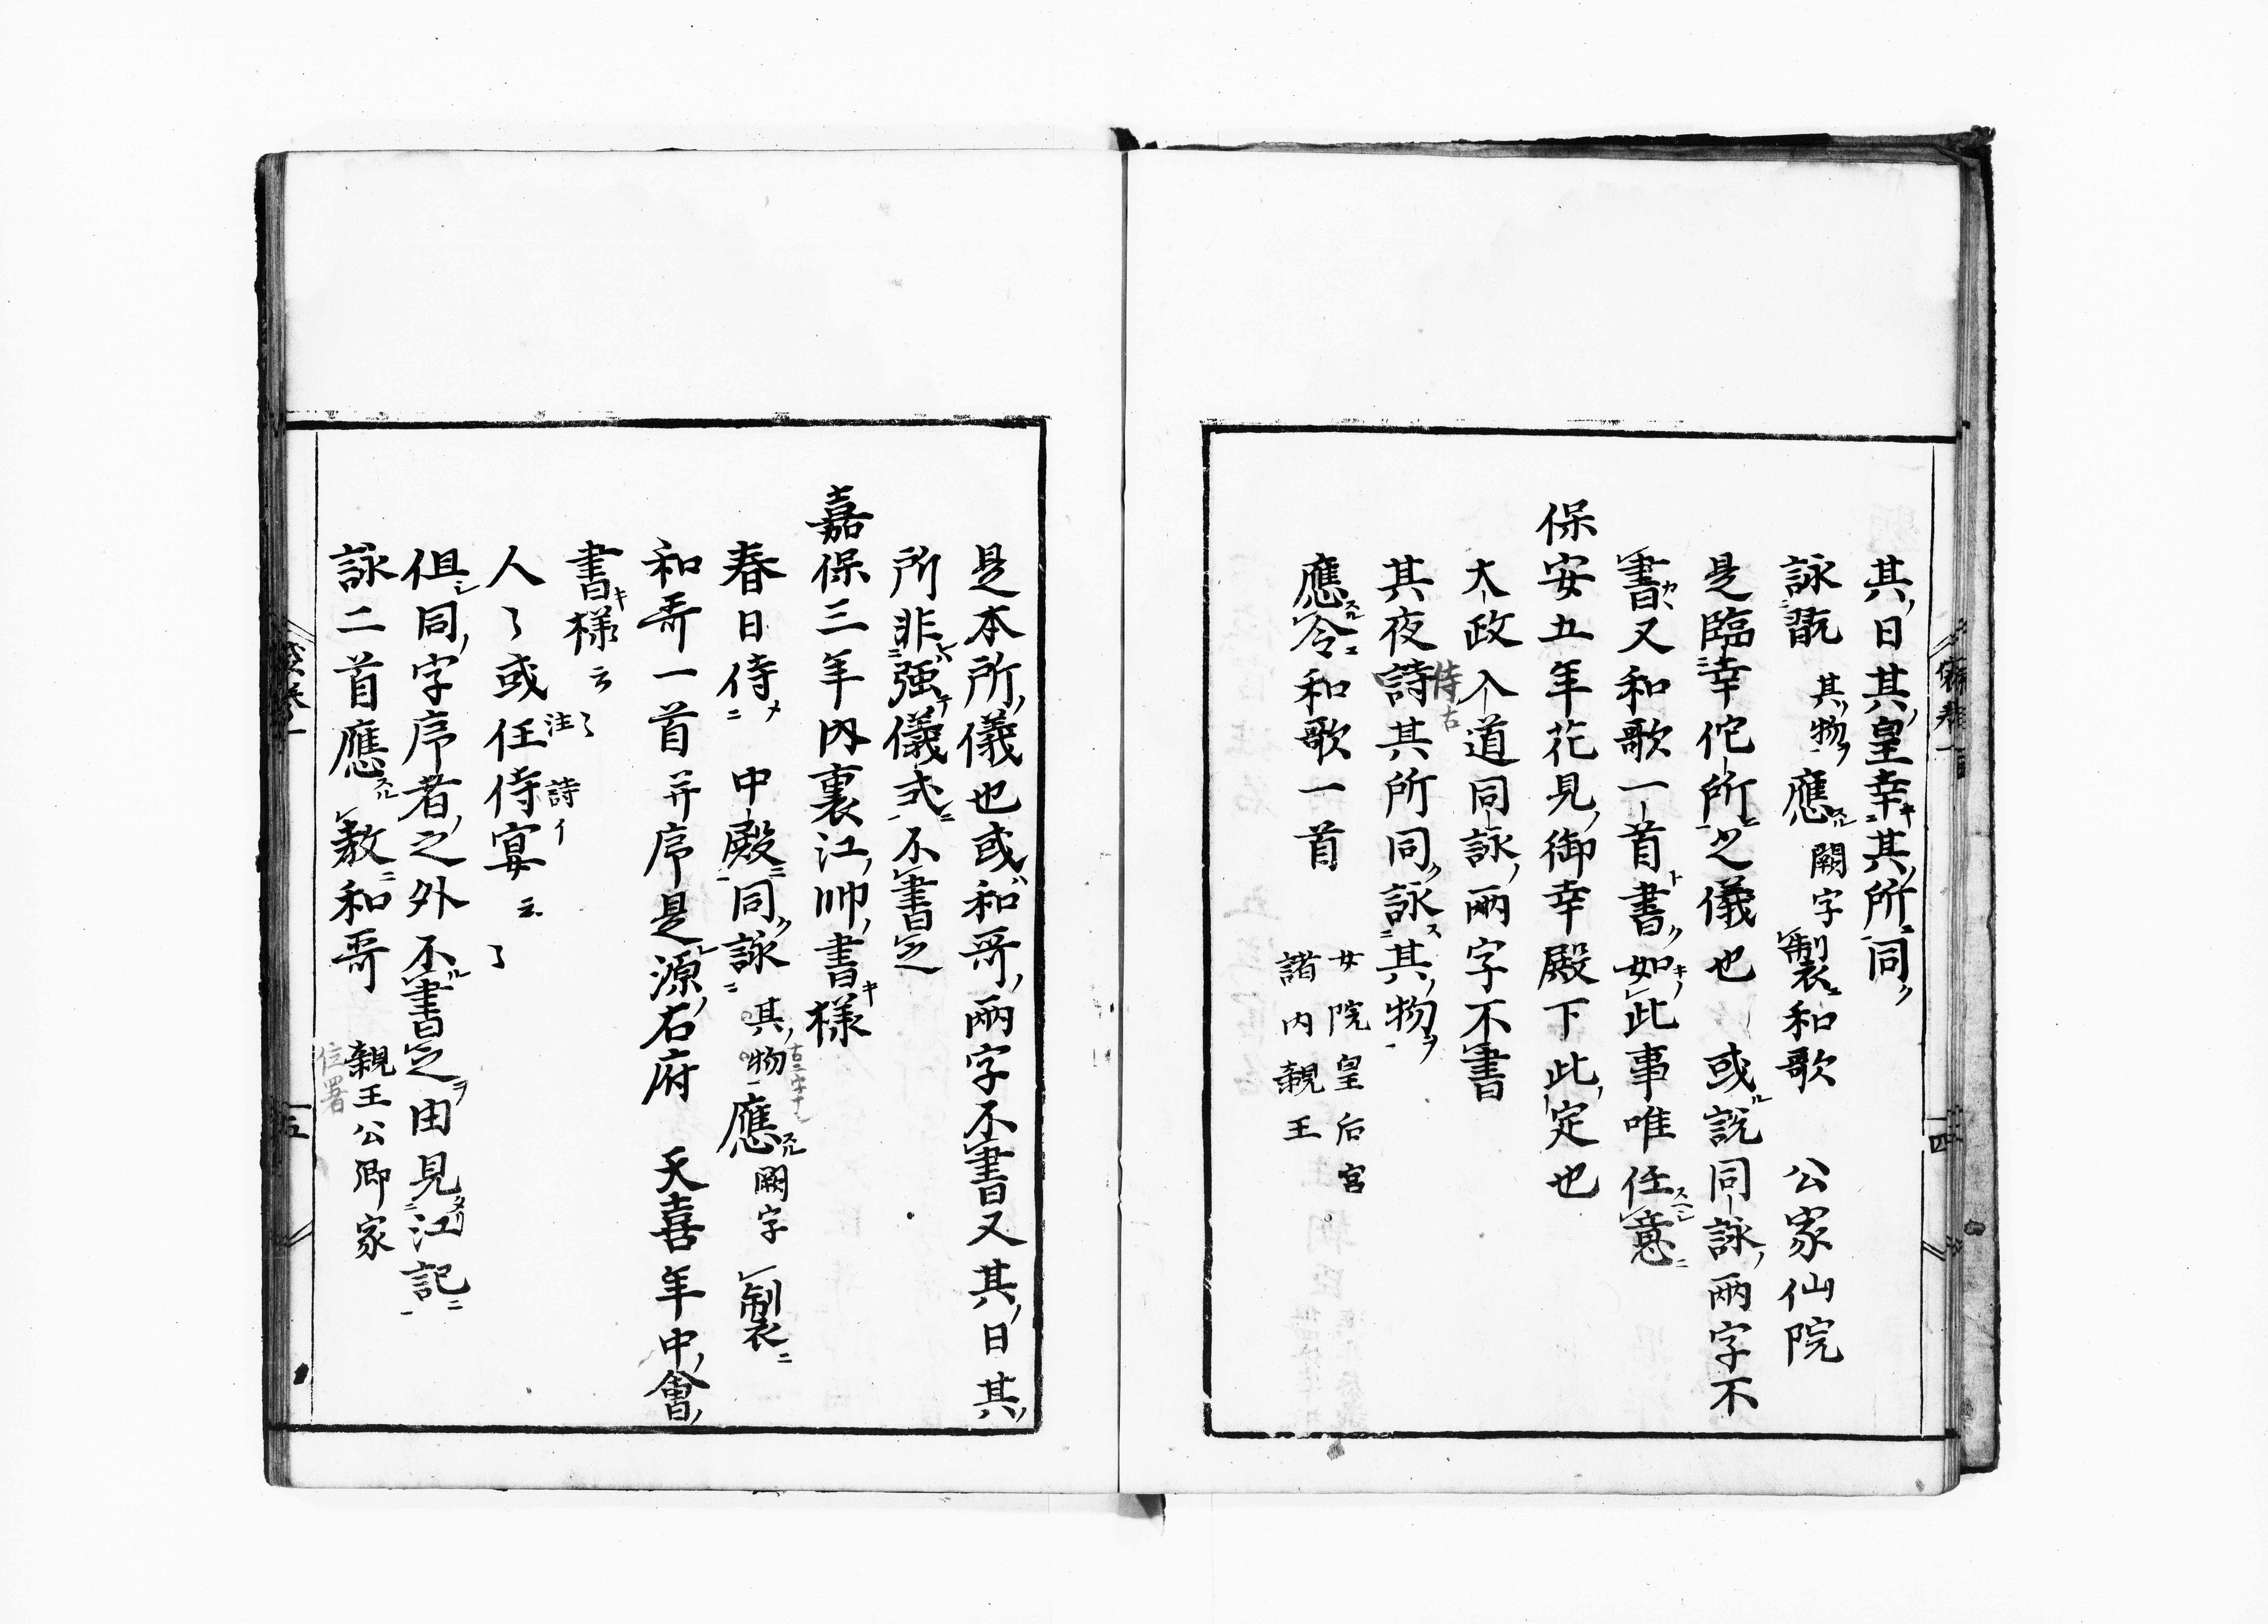 其日其皇幸其所同
詠翫其物應闕字製和歌　公家仙院
是臨幸佗所之儀也　或説同詠兩字不
書又和歌一首書如此事唯任意
保安五年花見御幸殿下此定也
太政入道同詠兩字不書
其夜詩其所同詠其物
侍古
應令和歌一首　女院皇后宮
諸内親王
是本所儀也或和哥兩字不書又其日其
所非強儀式不書之
嘉保三年内裏江帥書樣
春日侍　中殿同詠其物應闕字　製
和哥一首并序是源右府　天喜年中會
書樣云
人々或任侍宴云々
注　詩イ
但同字序者之外不書之由見江記
詠二首應　教和哥　親王公卿家
位署